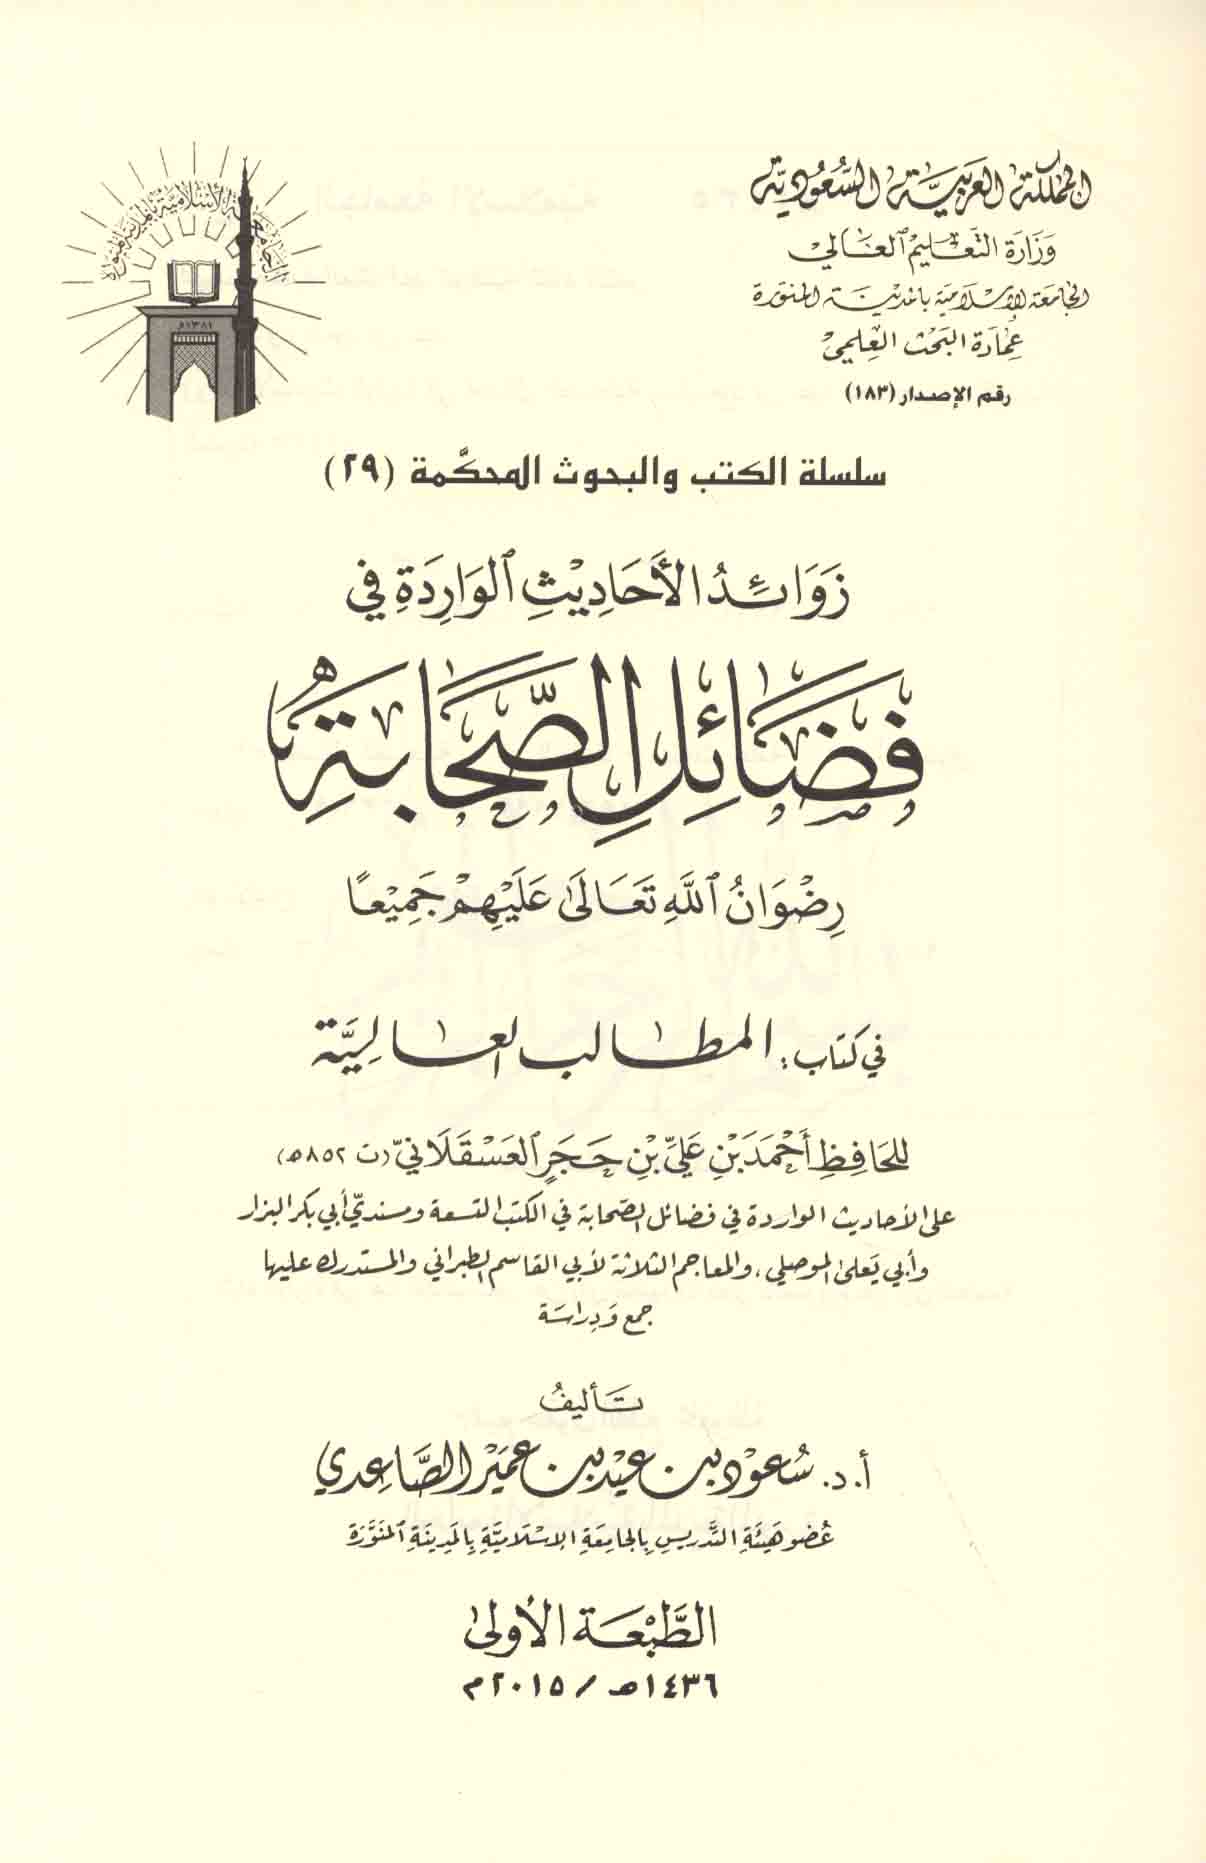 المملكة العربية السعودية
وزارة التعليم العالي
الجامعة الإسلامية بالمدينة المنورة
عمادة البحث العلمي
رقم الإصدار (١٨٣)
الجامعة الإسلامية بالمدينة المنورة
١٣٨١هـ
سلسلة الكتب والبحوث المحكَّمة (٢٩)
زَوَائِدُ الأَحَادِيْثِ الوَارِدَةِ في
فَضَائِلِ الصَّحَابَةِ
رِضْوَانُ اللَّهِ تَعَالَى عَلَيْهِمْ جَمِيْعًا
في كتاب: المطالب العاليَّة
للحَافِظِ أَحْمَدَ بْنِ عَلِيِّ بْنِ حَجَرٍ العَسْقَلَانيّ (ت ٨٥٢هـ)
على الأحاديث الواردة في فضائل الصّحابة في الكتب التسعة ومسنديّ أبي بكر البزار
وأبي يَعلى الموصلي، والمعاجم الثلاثة لأبي القاسم الطبراني والمستدرك عليها
جمع وَدِراسَة
تأليفُ
أ. د. سُعود بن عيد بن عمير الصَّاعِدي
عُضو هَيئَةِ التَّدريسِ بِالجَامِعَةِ الإِسْلَاميَّةِ بِالمَدِينَةِ المُنَوَّرَة
الطَّبْعَة الأُولى
١٤٣٦هـ / ٢٠١٥م